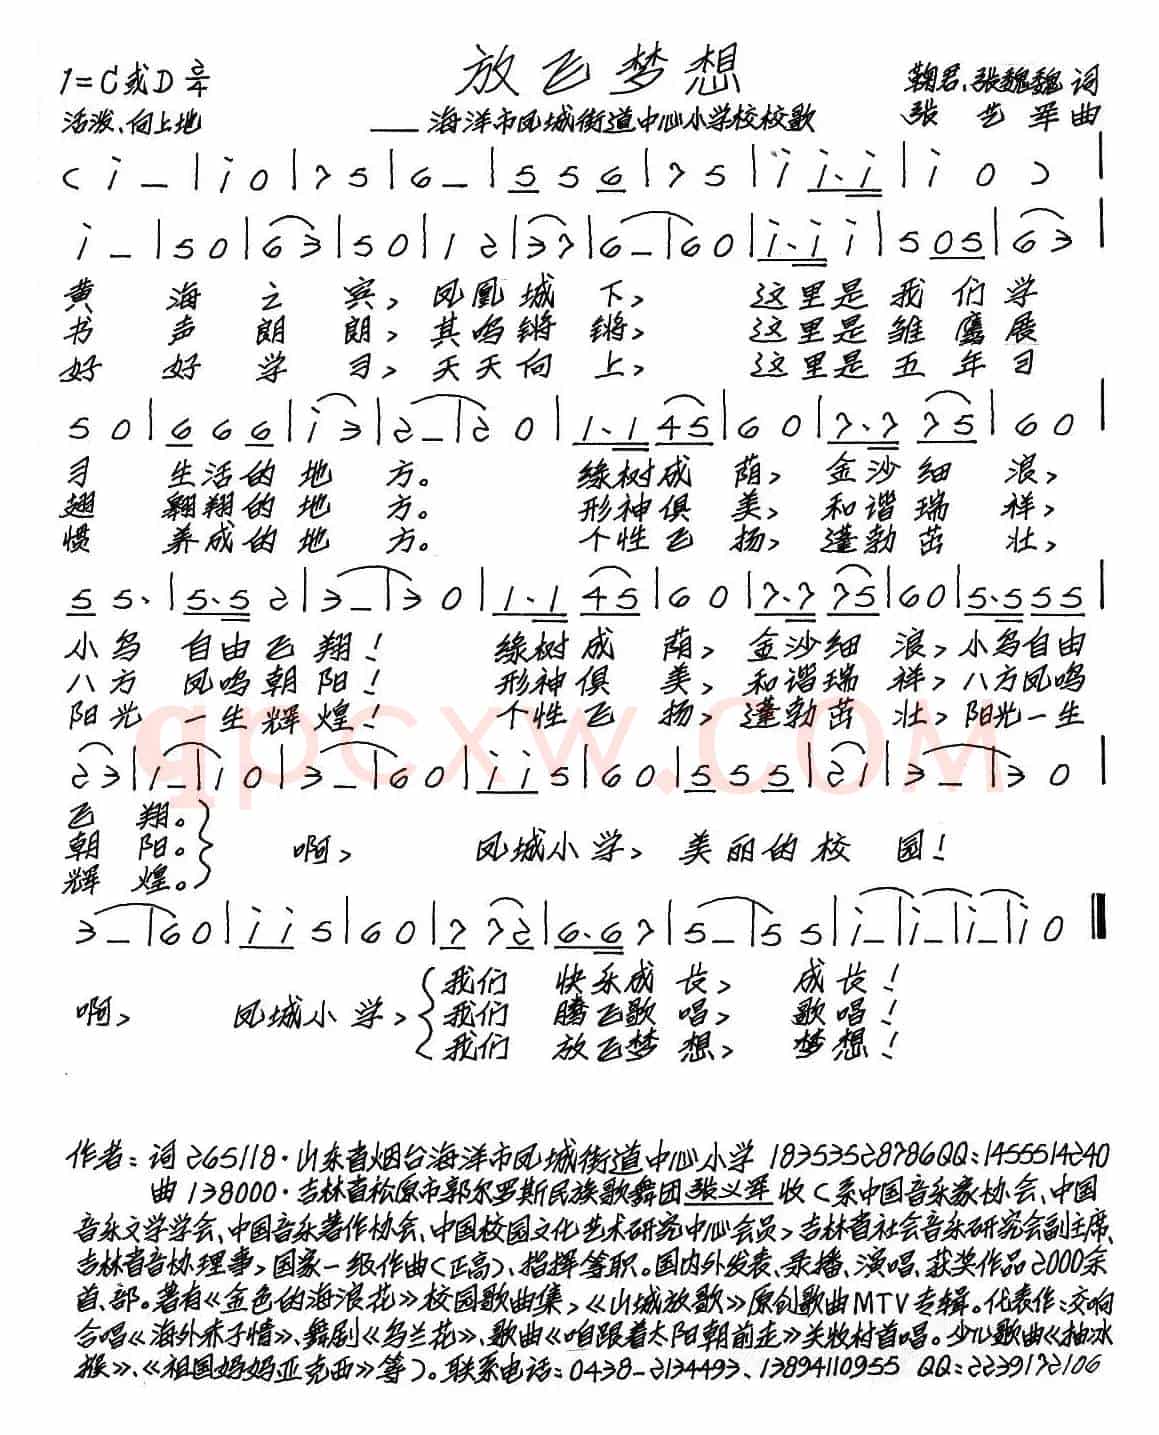 1=C或D 2/4
放飞梦想
鞠君、张魏魏 词
活泼、向上地
——海洋市凤城街道中心小学校校歌
张艺军 曲
( i – | i 0 | 7 5 | 6 – | 5 5 6 | 7 5 | i i. i | i 0 ) |
i – | 5 0 | 6 3 | 5 0 | 1 2 | 3 7 | 6 – | 6 0 | i. i i | 5 0 5 | 6 3 |
黄 海 之 宾, 凤凰城 下, 这里是我们学
书 声 朗 朗, 其鸣锵 锵, 这里是雏鹰展
好 好 学 习, 天天向 上, 这里是五年习
5 0 | 6 6 6 | i 3 | 2 – | 2 0 | 1. 1 4 5 | 6 0 | 7. 7 7 5 | 6 0 |
习 生活的地 方。 缘树成 荫, 金沙细 浪,
翅 翱翔的地 方。 形神俱 美, 和谐瑞 祥,
惯 养成的地 方。 个性飞 扬, 蓬勃茁 壮,
5 5. | 5. 5 2 | 3 – | 3 0 | 1. 1 4 5 | 6 0 | 7. 7 7 5 | 6 0 | 5. 5 5 5 |
小鸟 自由飞 翔! 缘树成 荫, 金沙细 浪, 小鸟自由
八方 凤鸣朝 阳! 形神俱 美, 和谐瑞 祥, 八方凤鸣
阳光 一生辉 煌! 个性飞 扬, 蓬勃茁 壮, 阳光一生
qpcxw.com
2 3 | 1 – | 1 0 | 3 – | 6 0 | i i 5 | 6 0 | 5 5 5 | 2 1 | 3 – | 3 0 |
飞 翔。
朝 阳。 啊, 凤城小学, 美丽的校 园!
辉 煌。
3 – | 6 0 | i i 5 | 6 0 | 7 7 2 | 6. 6 7 | 5 – | 5 5 | i – | i – | i – | i 0 ‖
我们 快乐成长, 成长!
啊, 凤城小学, 我们 腾飞歌唱, 歌唱!
我们 放飞梦想, 梦想!
作者: 词 265118·山东省烟台海洋市凤城街道中心小学 18353528786QQ:1455514240
曲 138000·吉林省松原市郭尔罗斯民族歌舞团张义军收(系中国音乐家协会、中国
音乐文学学会、中国音乐著作协会、中国校园文化艺术研究中心会员,吉林省社会音乐研究会副主席、
吉林省音协理事,国家一级作曲(正高)、指挥等职。国内外发表、录播、演唱、获奖作品2000余
首、部。著有《金色的海浪花》校园歌曲集,《山城放歌》原创歌曲MTV专辑。代表作:交响
合唱《海外赤子情》、舞剧《乌兰花》、歌曲《咱跟着太阳朝前走》关牧村首唱。少儿歌曲《抽冰
猴》、《祖国妈妈亚克西》等)。联系电话:0438-2134493、13894110955 QQ:2239172106